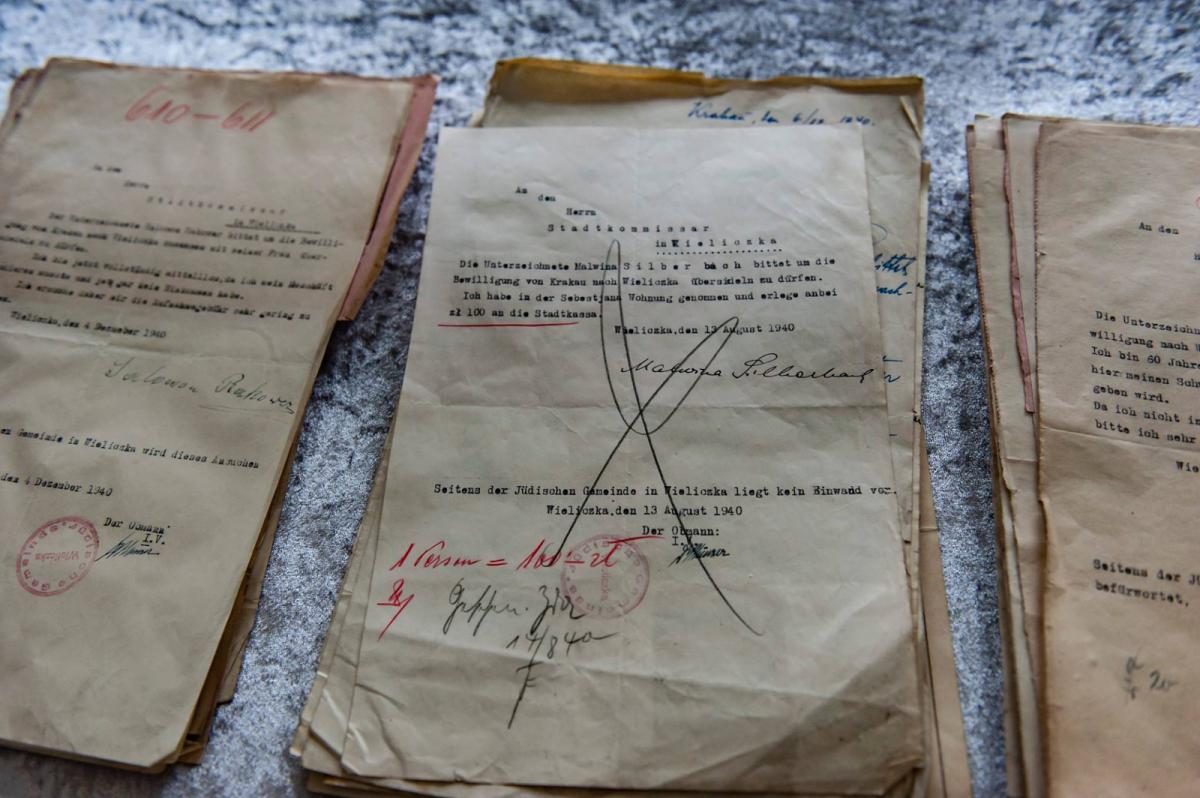 610-611
An den
Herrn
Stadtkommissar
in Wieliczka
Der Unterzeichnete Salomon Rakower bittet um die Bewilli-
gung von Krakau nach Wieliczka zusammen mit seiner Frau über-
siedeln zu dürfen.
Ich bin jetzt vollständig mittellos, da ich mein Geschäft
und gar kein Einkommen habe.
Ich ersuche daher mir die Aufnahmsgebühr sehr gering zu
Wieliczka,den 4 Dezember 1940
Salomon Rakower
en Gemeinde in Wieliczka wird dieses Ansuchen
den 4 Dezember 1940
Der Obmann:
I.V.
Jüdische Gemeinde
Wieliczka
Krakau, den 6/12 1940.
An
den
Herrn
Stadtkommissar
in Wieliczka
Die Unterzeichnete Malwina Silberbach bittet um die
Bewilligung von Krakau nach Wieliczka übersideln zu dürfen.
Ich habe in der Sebestjana Wohnung genommen und erlege anbei
zł 100 an die Stadtkassa.
Wieliczka,den 13 August 1940
Malwina Silberbach
Seitens der Jüdischen Gemeinde in Wieliczka liegt kein Einwand vor.
Wieliczka,den 13 August 1940
Der Obmann:
I.V.
1 Person = 100 - zł
Jüdische Gemeinde
Wieliczka
17/8 40
An den
Die Unterzeichn
willigung nach W
Ich bin 60 Jahre
hier meinen Sch
geben wird.
Da ich nicht in
bitte ich sehr
Wie
Seitens der Jü
befürwortet.
20